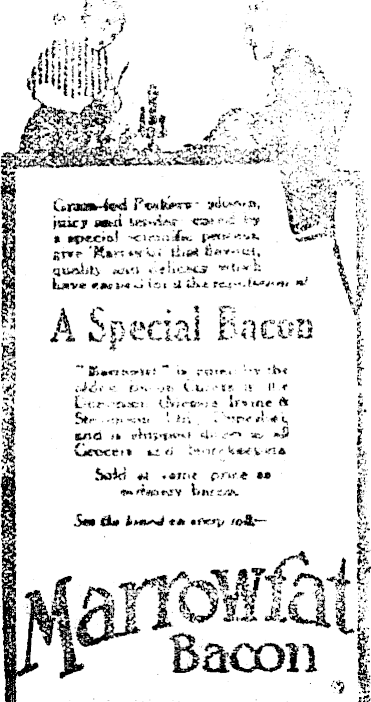 Grain-fed Porkers
juicy and tender cured by
a special scientific process
give "Marrowfat" that flavour,
quality and delicacy which
have earned for it the reputation of
A Special Bacon
"Marrowfat" is cured by the
oldest Bacon Curers in the
Irvine &
and is shipped direct to all
Grocers and Storekeepers
Sold at same price as
ordinary bacon.
See the brand on every roll—
Marrowfat
Bacon